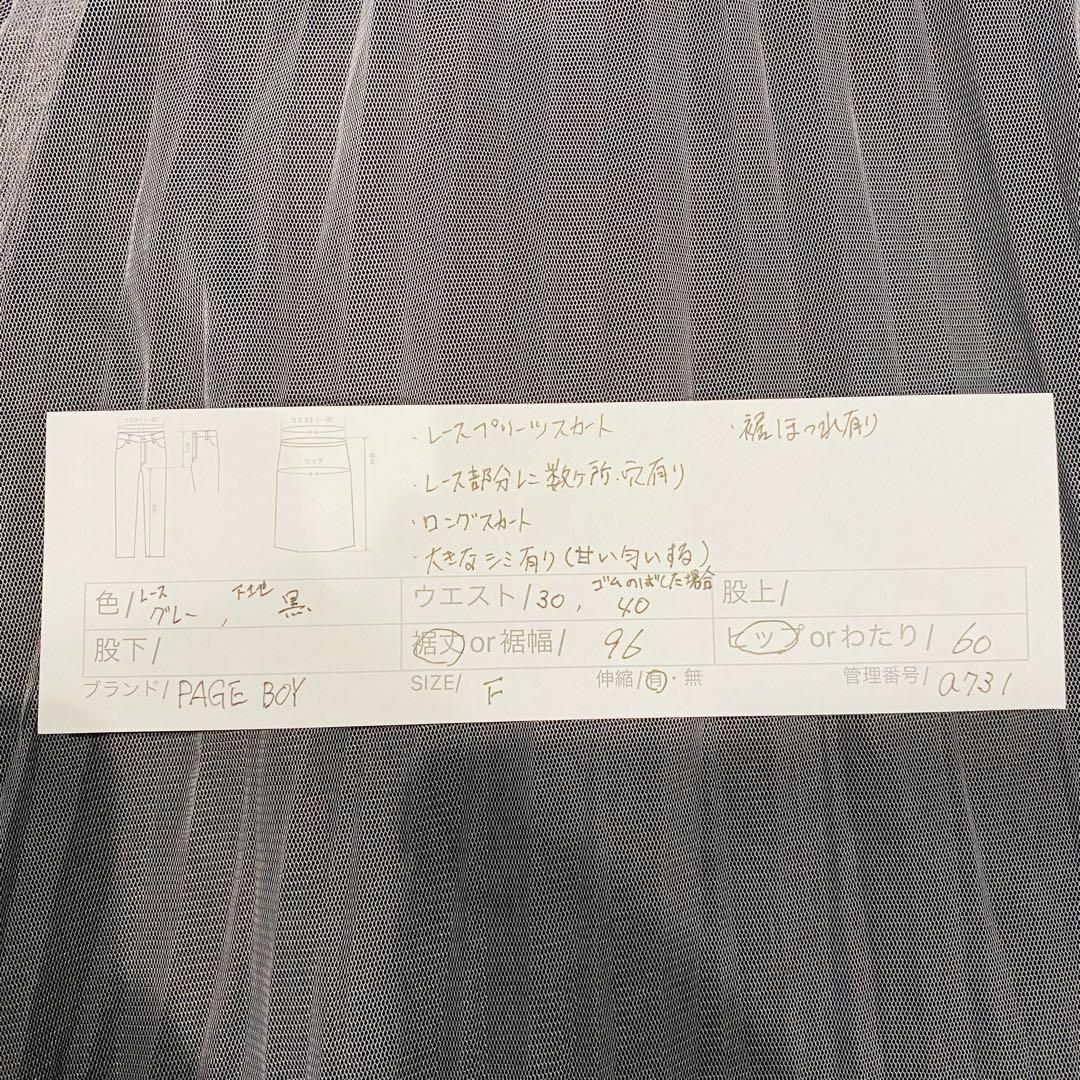 ウエスト(一周)
ウエスト(一周)
ヒップ
・レースプリーツスカート
・裾ほつれ有り
・レース部分に数ヶ所穴有り
・ロングスカート
・大きなシミ有り(甘い匂いする)
色/レースグレー, 下地黒
ウエスト/30, ゴムのばした場合40
股上/
股下/
裾丈or裾幅/ 96
ヒップorわたり/ 60
ブランド/PAGE BOY
SIZE/ F
伸縮/有・無
管理番号/a731